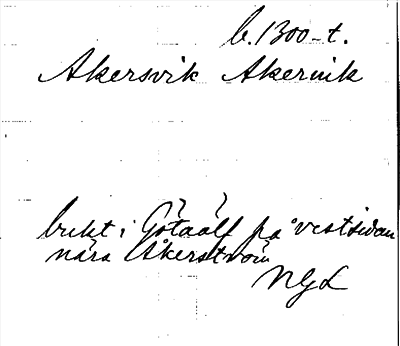 b. 1300-t.
Akersvik Akervik
bukt i Götaälf på vestsidan
nära Åkerström
NGL